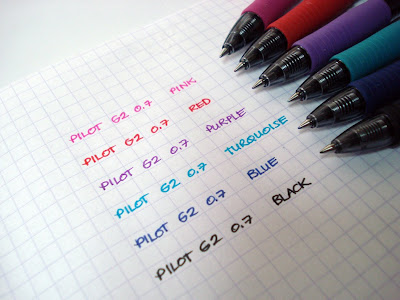 PILOT G2 0.7 PINK
PILOT G2 0.7 RED
PILOT G2 0.7 PURPLE
PILOT G2 0.7 TURQUOISE
PILOT G2 0.7 BLUE
PILOT G2 0.7 BLACK